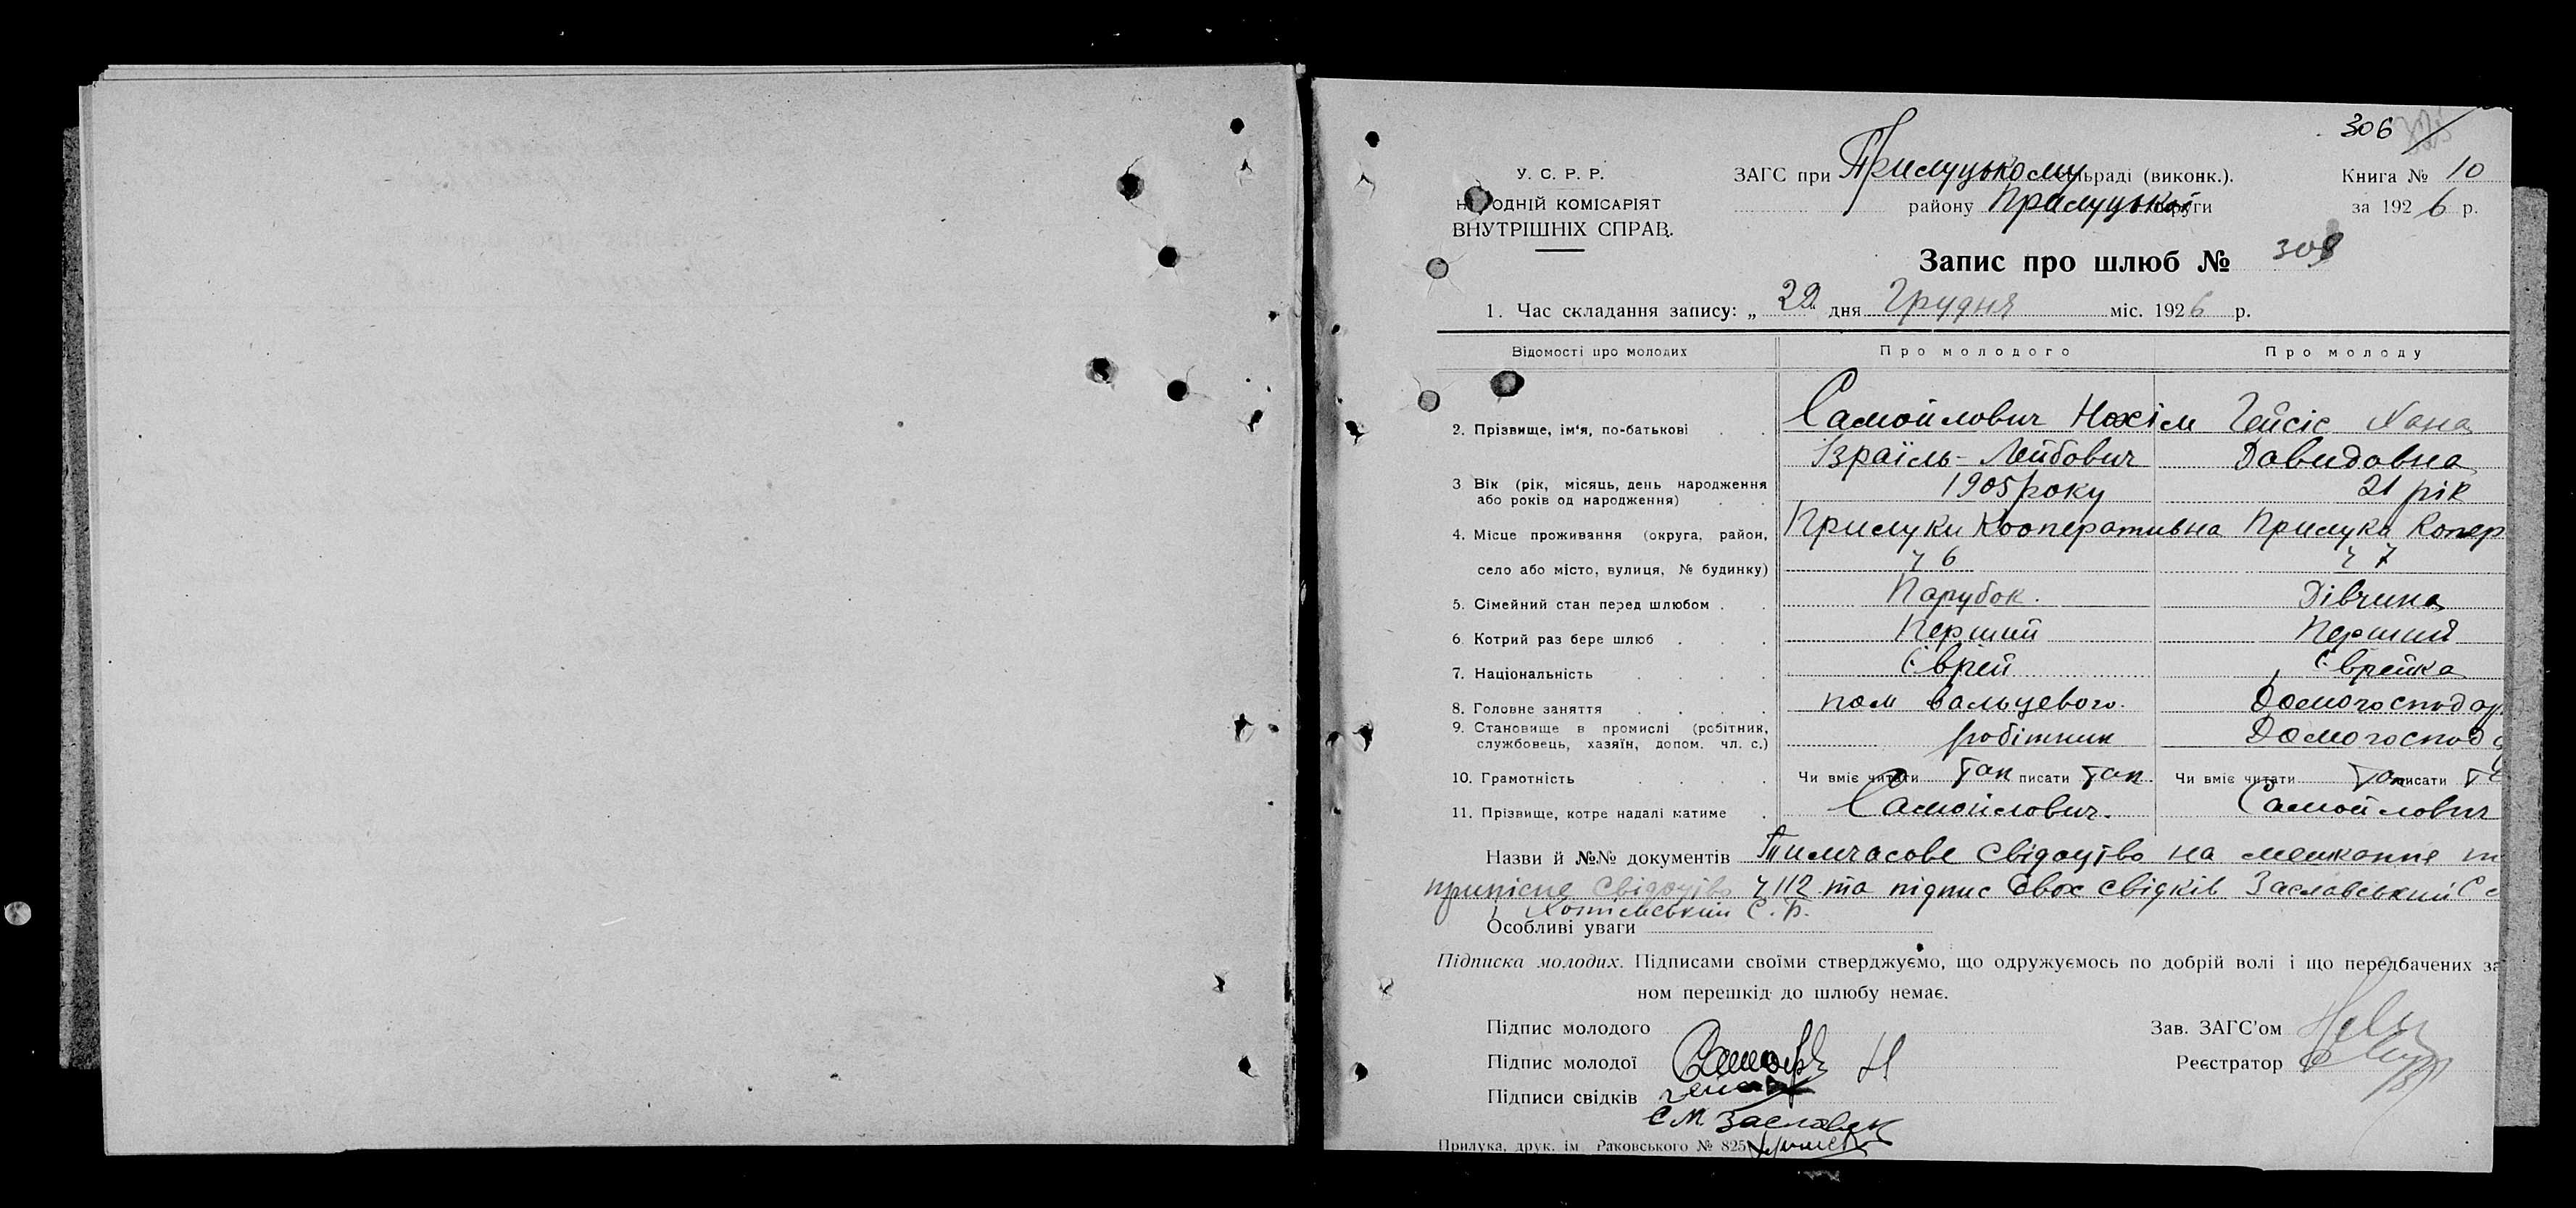 306
У. С. Р. Р. ЗАГС при Прилуцькому сільраді (виконк.). Книга № 10
НАРОДНІЙ КОМІСАРІЯТ району Прилуцької округи за 1926 р.
ВНУТРІШНІХ СПРАВ.
Запис про шлюб № 308
1. Час складання запису: „ 29 дня Грудня міс. 1926 р.
Відомості про молодих Про молодого Про молоду
2. Прізвище, ім'я, по-батькові Самойлович Нохім Гейсіс Хана
Ізраїль-Лейбович Давидовна
3 Вік (рік, місяць, день народження 1905 року 21 рік
або років од народження)
4. Місце проживання (округа, район, Прилуки Кооперативна Прилука Копер
село або місто, вулиця, № будинку) ч 6 ч 7
5. Сімейний стан перед шлюбом . Парубок. Дівчина
6. Котрий раз бере шлюб Перший Перший
7. Національність Єврей Єврейка
8. Головне заняття пом вальцевого. Домогосподар
9. Становище в промислі (робітник, робітник Домогоспод
службовець, хазяїн, допом. чл. с.)
10. Грамотність Чи вміє читати Так писати Так Чи вміє читати Так писати
11. Прізвище, котре надалі матиме Самойлович. Самойлович
Назви й №№ документів Тимчасове свідоцтво на мешкання
приписне свідоцтво ч 112 та підпис двох свідків Заславський С
і С. Б.
Особливі уваги
Підписка молодих. Підписами своїми стверджуємо, що одружуємось по добрій волі і що передбачених за
ном перешкід до шлюбу немає.
Підпис молодого Зав. ЗАГС'ом
Підпис молодої Н Реєстратор
Підписи свідків
С М Заславск
Прилука, друк. ім Раковського № 825